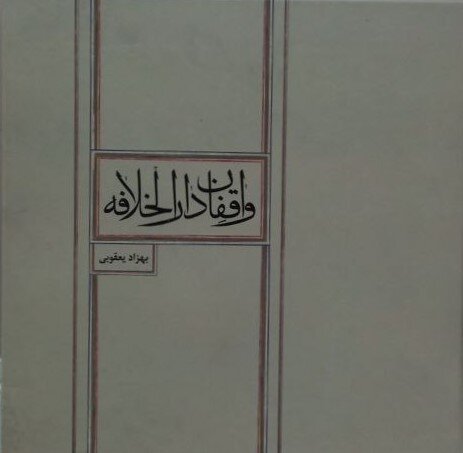 واقفان دارالخلافه
بهزاد یعقوبی